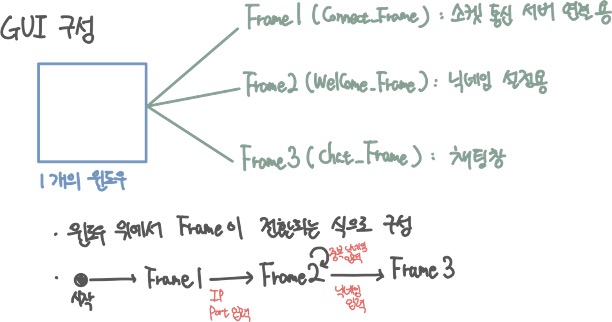 GUI 구성
Frame1 (Connect_Frame) : 소켓 통신 서버 연결 용
Frame2 (Welcome_Frame) : 닉네임 설정용
Frame3 (Chat_Frame) : 채팅창
1개의 윈도우
· 윈도우 위에서 Frame이 전환되는 식으로 구성
· 시작 Frame1 IP Port 입력 Frame2 중복 닉네임 입력 닉네임 입력 Frame3